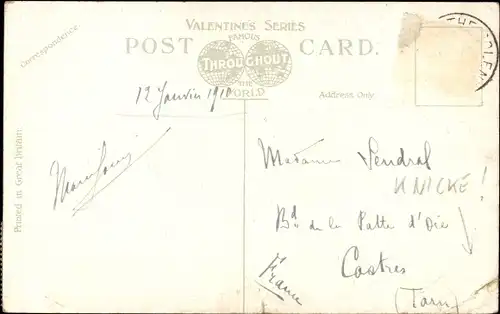 VALENTINE'S SERIES
FAMOUS
POST CARD.
THROUGHOUT
THE
WORLD
Correspondence.
Address Only.
12 Janvier 1910
Madame Sendral
KNICKE!
Bd de la Patte d'Oie
Castres
(Tarn)
France
Printed in Great Britain